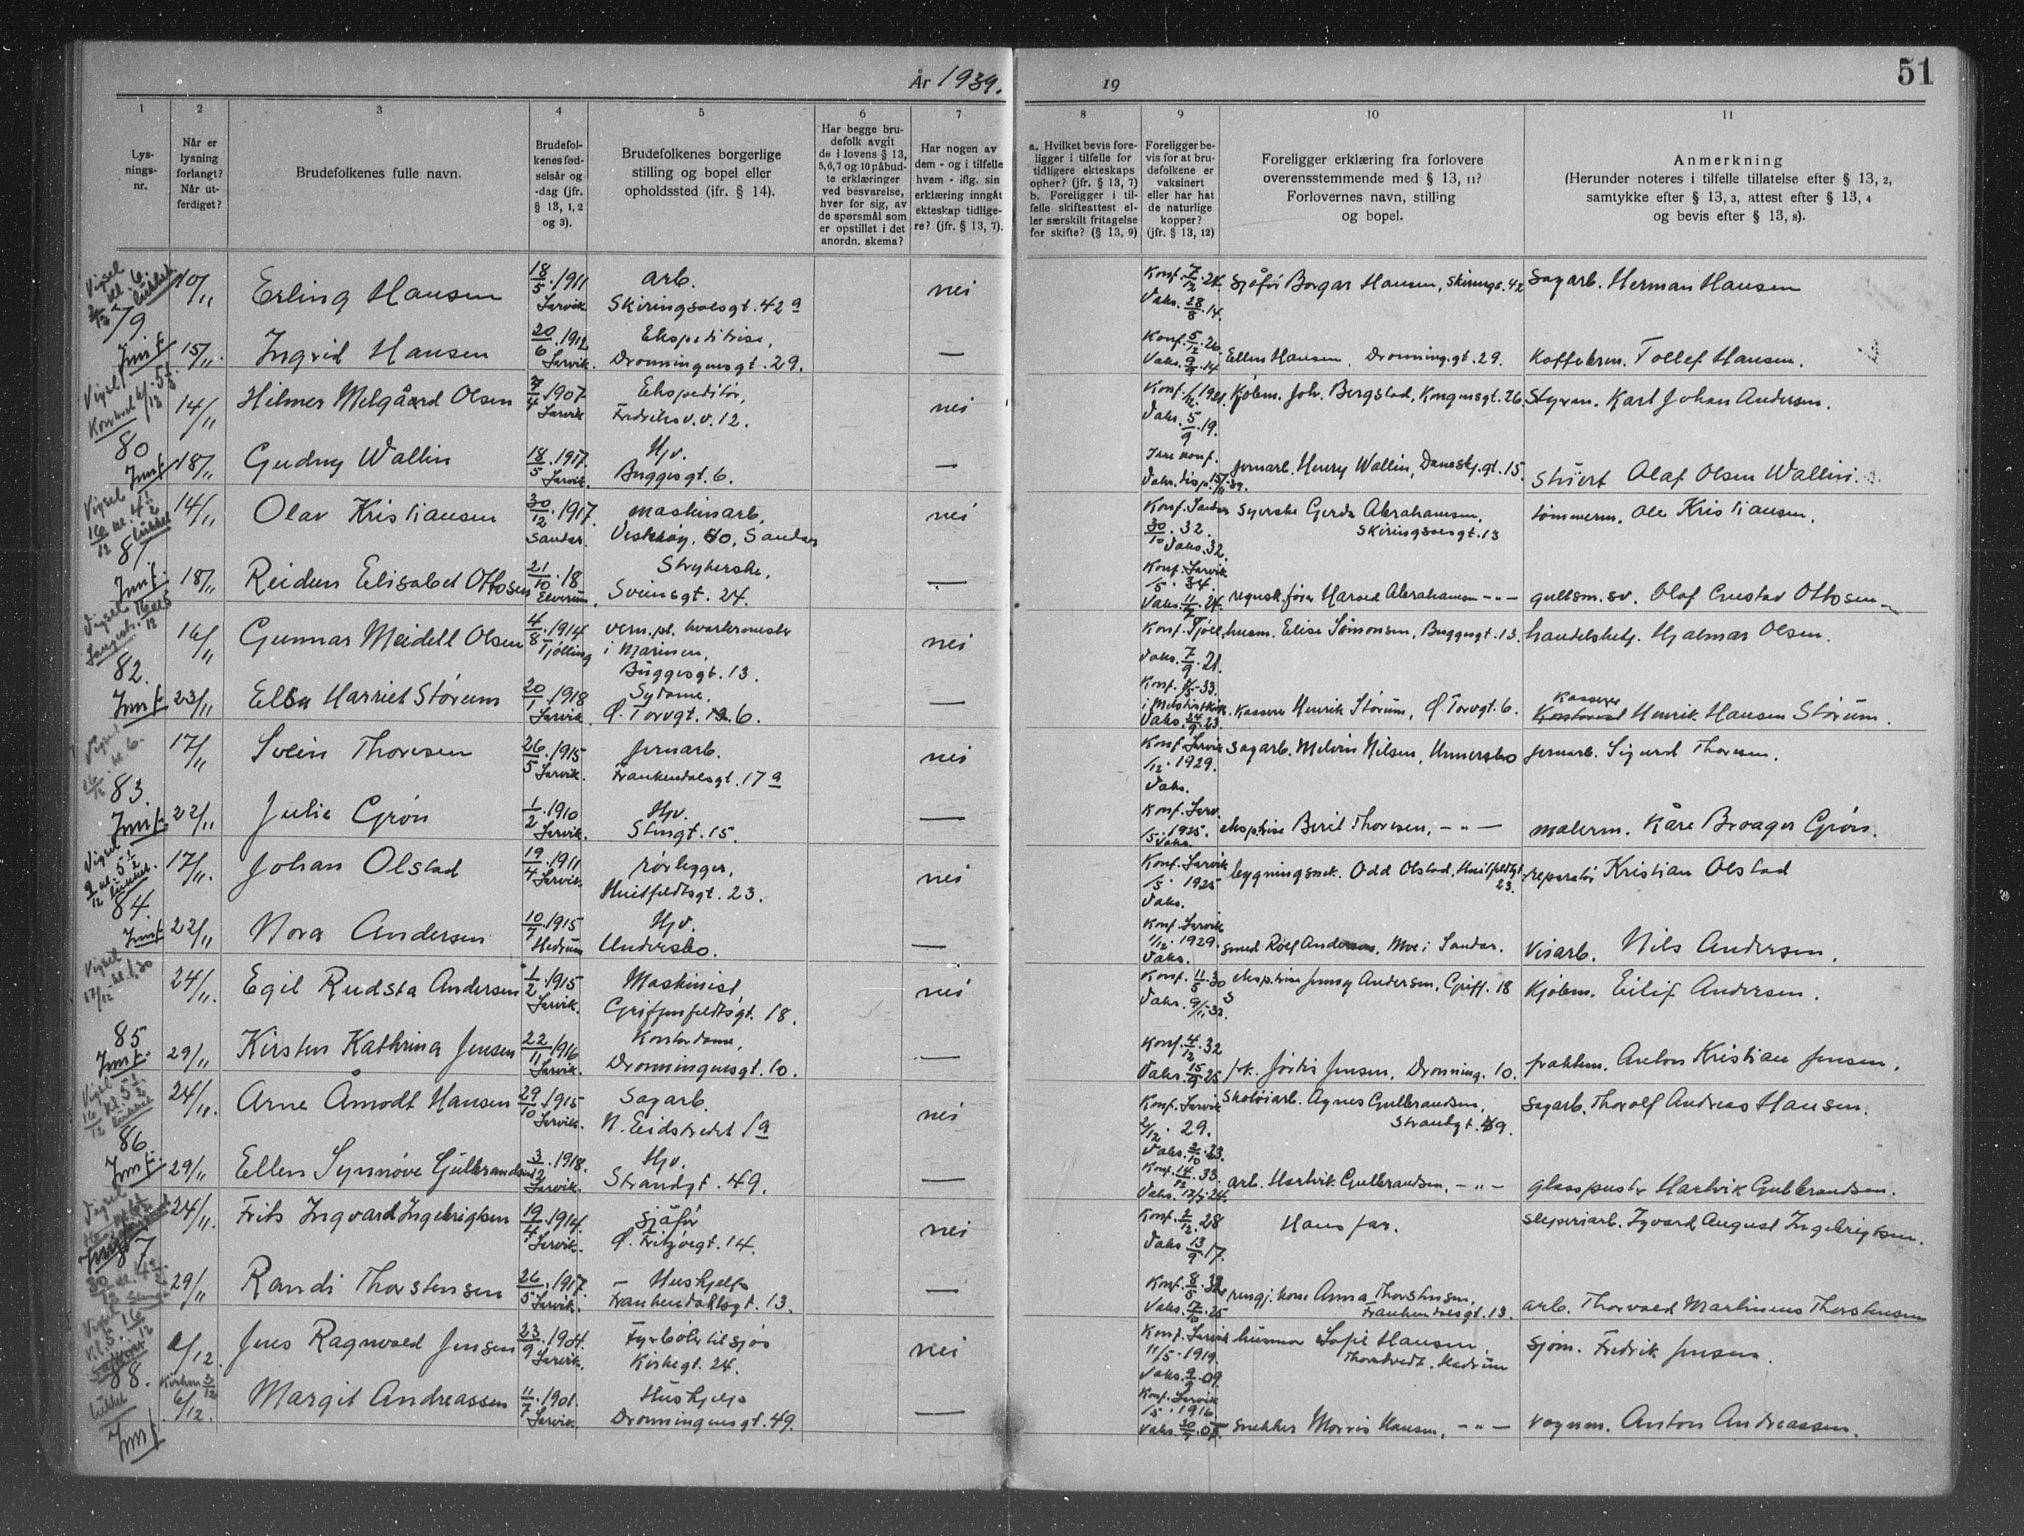 År 1939.
19
51
1 2 3 4 5 6 7 8 9 10 11
Lys-
nings-
nr.
Når er
lysning
forlangt?
Når ut-
ferdiget?
Brudefolkenes fulle navn.
Brudefol-
kenes fød-
selsår og
-dag (jfr.
§ 13, 1, 2
og 3).
Brudefolkenes borgerlige
stilling og bopel eller
opholdssted (ifr. § 14).
Har begge bru-
defolk avgit
de i lovens § 13,
5, 6, 7 og 10 påbud-
te erklæringer
ved besvarelse,
hver for sig, av
de spørsmål som
er opstillet i det
anordn. skema?
Har nogen av
dem - og i tilfelle
hvem - iflg. sin
erklæring inngått
ekteskap tidlige-
re? (jfr. § 13, 7).
a. Hvilket bevis fore-
ligger i tilfelle for
tidligere ekteskaps
opher? (jfr. § 13, 7)
b. Foreligger i til-
felle skifteattest el-
ler særskilt fritagelse
for skifte? (§ 13, 9)
Foreligger be-
vis for at bru-
defolkene er
vaksinert
eller har hat
de naturlige
kopper?
(jfr. § 13, 12)
Foreligger erklæring fra forlovere
overensstemmende med § 13, 11?
Forlovernes navn, stilling
og bopel.
Anmerkning
(Herunder noteres i tilfelle tillatelse efter § 13, 2,
samtykke efter § 13, 3, attest efter § 13, 4
og bevis efter § 13, 8).
79
10/11 Erling Hansen 18/5 1911 Larvik arb. Skiringssalsgt. 42 a nei Konf. 7/2 24. Vaks. 28/8 14. Sjåfør Borgar Hansen, Skiringss. 42 Sagarb. Herman Hansen
15/11 Ingrid Hansen 20/6 1912 Larvik. Ekspeditrise, Dronningensgt. 29. — Konf. 5/12 26. Vaks. 9/9 14 Ellen Hansen, Dronning.gt. 29. Kaffebren. Tollef Hansen.
80
14/11 Hilmer Melgaard Olsen 7/4 1907 Larvik Ekspeditør, Fredriks v. v. 12. nei Konf. 1921. Vaks. 5/9 19. Kjølm. Joh. Bergstad, Kongensgt. 26. Styrm. Karl Johan Andersen.
18/11 Gudny Wallin 18/5 1917. Larvik. Hjv. Buggesgt. 6. — Ikke konf. Vaks. disp. 15/11 39. jernarb. Henry Wallin, Danesk.gt. 15 Stuert Olaf Olsen Wallin.
81
14/11 Olav Kristiansen 30/12 1917. Sandar. maskinarb, Vesterøy, 60, Sandar nei Konf. Sandar 30/10 32. Vaks. 32. Syerske Gerda Abrahamsen, Skiringssalsgt. 13 tømmerm. Ole Kristiansen.
18/11 Reidun Elisabet Ottosen 21/10 18 Elverum. Strykerske, Sveinsgt. 24. — Konf. Larvik /5 34. Vaks. 11/9 24. regnsk.fører Harald Abrahamsen -"- gullsm. sv. Olaf Gustav Ottosen
82.
16/11 Gunnar Meidell Olsen 4/8 1914 Tjølling vern.pl. kvartermester i Marinen, Buggesgt. 13. nei Konf. Tjøll. Vaks. 7/9 21. husm. Elise Simonsen, Buggesgt. 13. handelsbetj. Hjalmar Olsen.
23/11 Elsa Harriet Størum 20/1 1918 Larvik. Sydame, Ø. Torvgt. 6. — Vaks. 24/9 23 Kasserer Henrik Størum, Ø Torvgt. 6. Kasserer Henrik Hansen Størum.
83.
17/11 Svein Thoresen 26/5 1915 Larvik. Jernarb. Frankendalsgt. 17 a nei Konf. Larvik /12 1929. Vaks. Sagarb. Melvin Nilsen, Undersbo Jernarb. Sigurd Thoresen.
22/11 Julie Grøn 1/2 1910 Larvik. Hjv. Stengt. 15. — Konf. Larv. /5 1925. Vaks. ekspetrise Beril Thoresen, -"- malerm. Kåre Broager Grøn.
84.
17/11. Johan Olstad 19/4 1911 Larvik. rørlegger, Huitfeldtsgt. 23. nei Konf. Larvik /5 1925 Vaks. bygningssnk. Odd Olstad, Huitfeldtgt 23. reparatør Kristian Olstad
22/11 Nora Andersen 10/7 1915 Hedrum Hjv. Undersbo. — Konf. Larvik 1/12 1929. Vaks. Smed Rolf Andersen, Moe i Sandar. Visarb. Nils Andersen.
85
24/11. Egil Rudsta Andersen 1/2 1915 Larvik. Maskinist, Griffenfeldtsgt. 18. nei Konf. 11/5 30 ekspetrise Jenny Andersen, Griff. 18 Kjølem. Eilif Andersen.
29/11 Kirsten Kathrina Jensen 22/11 1916 Larvik. Kontordame, Dronningensgt. 10. — Konf. 4/12 32 Vaks. 15/9 25 frk. Jørdis Jensen, Dronning. 10. fraktem. Anton Kristian Jensen.
86
24/11. Arne Åmodt Hansen 29/10 1915 Larvik. Sagarb. N. Eidstredet 1 a nei Konf. Larvik 2/12 29. Vaks. 2/10 23. Skotøiarb. Agnes Gulbrandsen, Strandgt. 49. Sagarb. Thorolf Andreas Hansen.
29/11 Ellen Synnøve Gulbrandsen 3/2 1918. Larvik. Hjv. Strandgt. 49. — Konf. 14/12 33. arb. Hartvik Gulbrandsen, -"- glasspuster Hartvik Gulbrandsen.
87
24/11. Frits Ingvard Ingebrigtsen 19/4 1914. Larvik. sjåfør Ø. Fritzøegt. 14. nei Konf. 2/12 28 Vaks 13/9 17. Hans far. sliperiarb. Ingvard August Ingebrigtsen.
29/11 Randi Thorstensen 26/5 1917. Larvik. Hushjelp Frankendalsgt. 13. — Konf. 8/5 32 rengj. kone Anna Thorstensen, Frankendalsgt. 13. arb. Thorvald Martinius Thorstensen
88.
2/12. Jens Ragnvald Jensen 23/9 1904. Larvik. Fyrbøter til sjøs Kirkegt. 24. nei Konf. Larvik 11/5 1919. Vaks. 2/9 09. husmor Sofie Hansen, Thorstvedt. Hedrum sjøm. Fredrik Jensen.
6/12. Margit Andreassen 11/7 1901. Larvik. Hushjelp Dronningensgt. 49. — Konf. Larvik /5 1916 Snekker Morris Hansen, -"- vognm. Anton Andreassen.